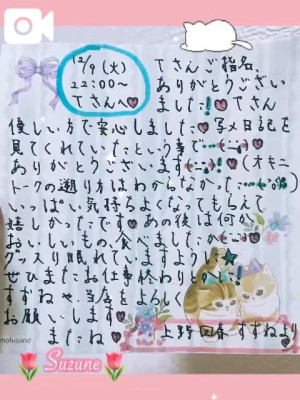 12/9(火)
22:00〜
Tさんへ♥
Tさんご指名、
ありがとうござい
ました!♥Tさん
優しい方で安心しました♥写メ日記を
見てくれていたという事で
ありがとうございます(オキニ
トークの遡り方はわからなかった
いっぱい気持ちよくなってもらえて
嬉しかったです♥あの後は何か
おいしいもの、食べましたか
グッスリ眠れていますように
ぜひまたお仕事終わりとか
すずねや、当店をよろしく
お願いします♥
またね♥
上野回春 すずねより♥
mofusand
Suzune